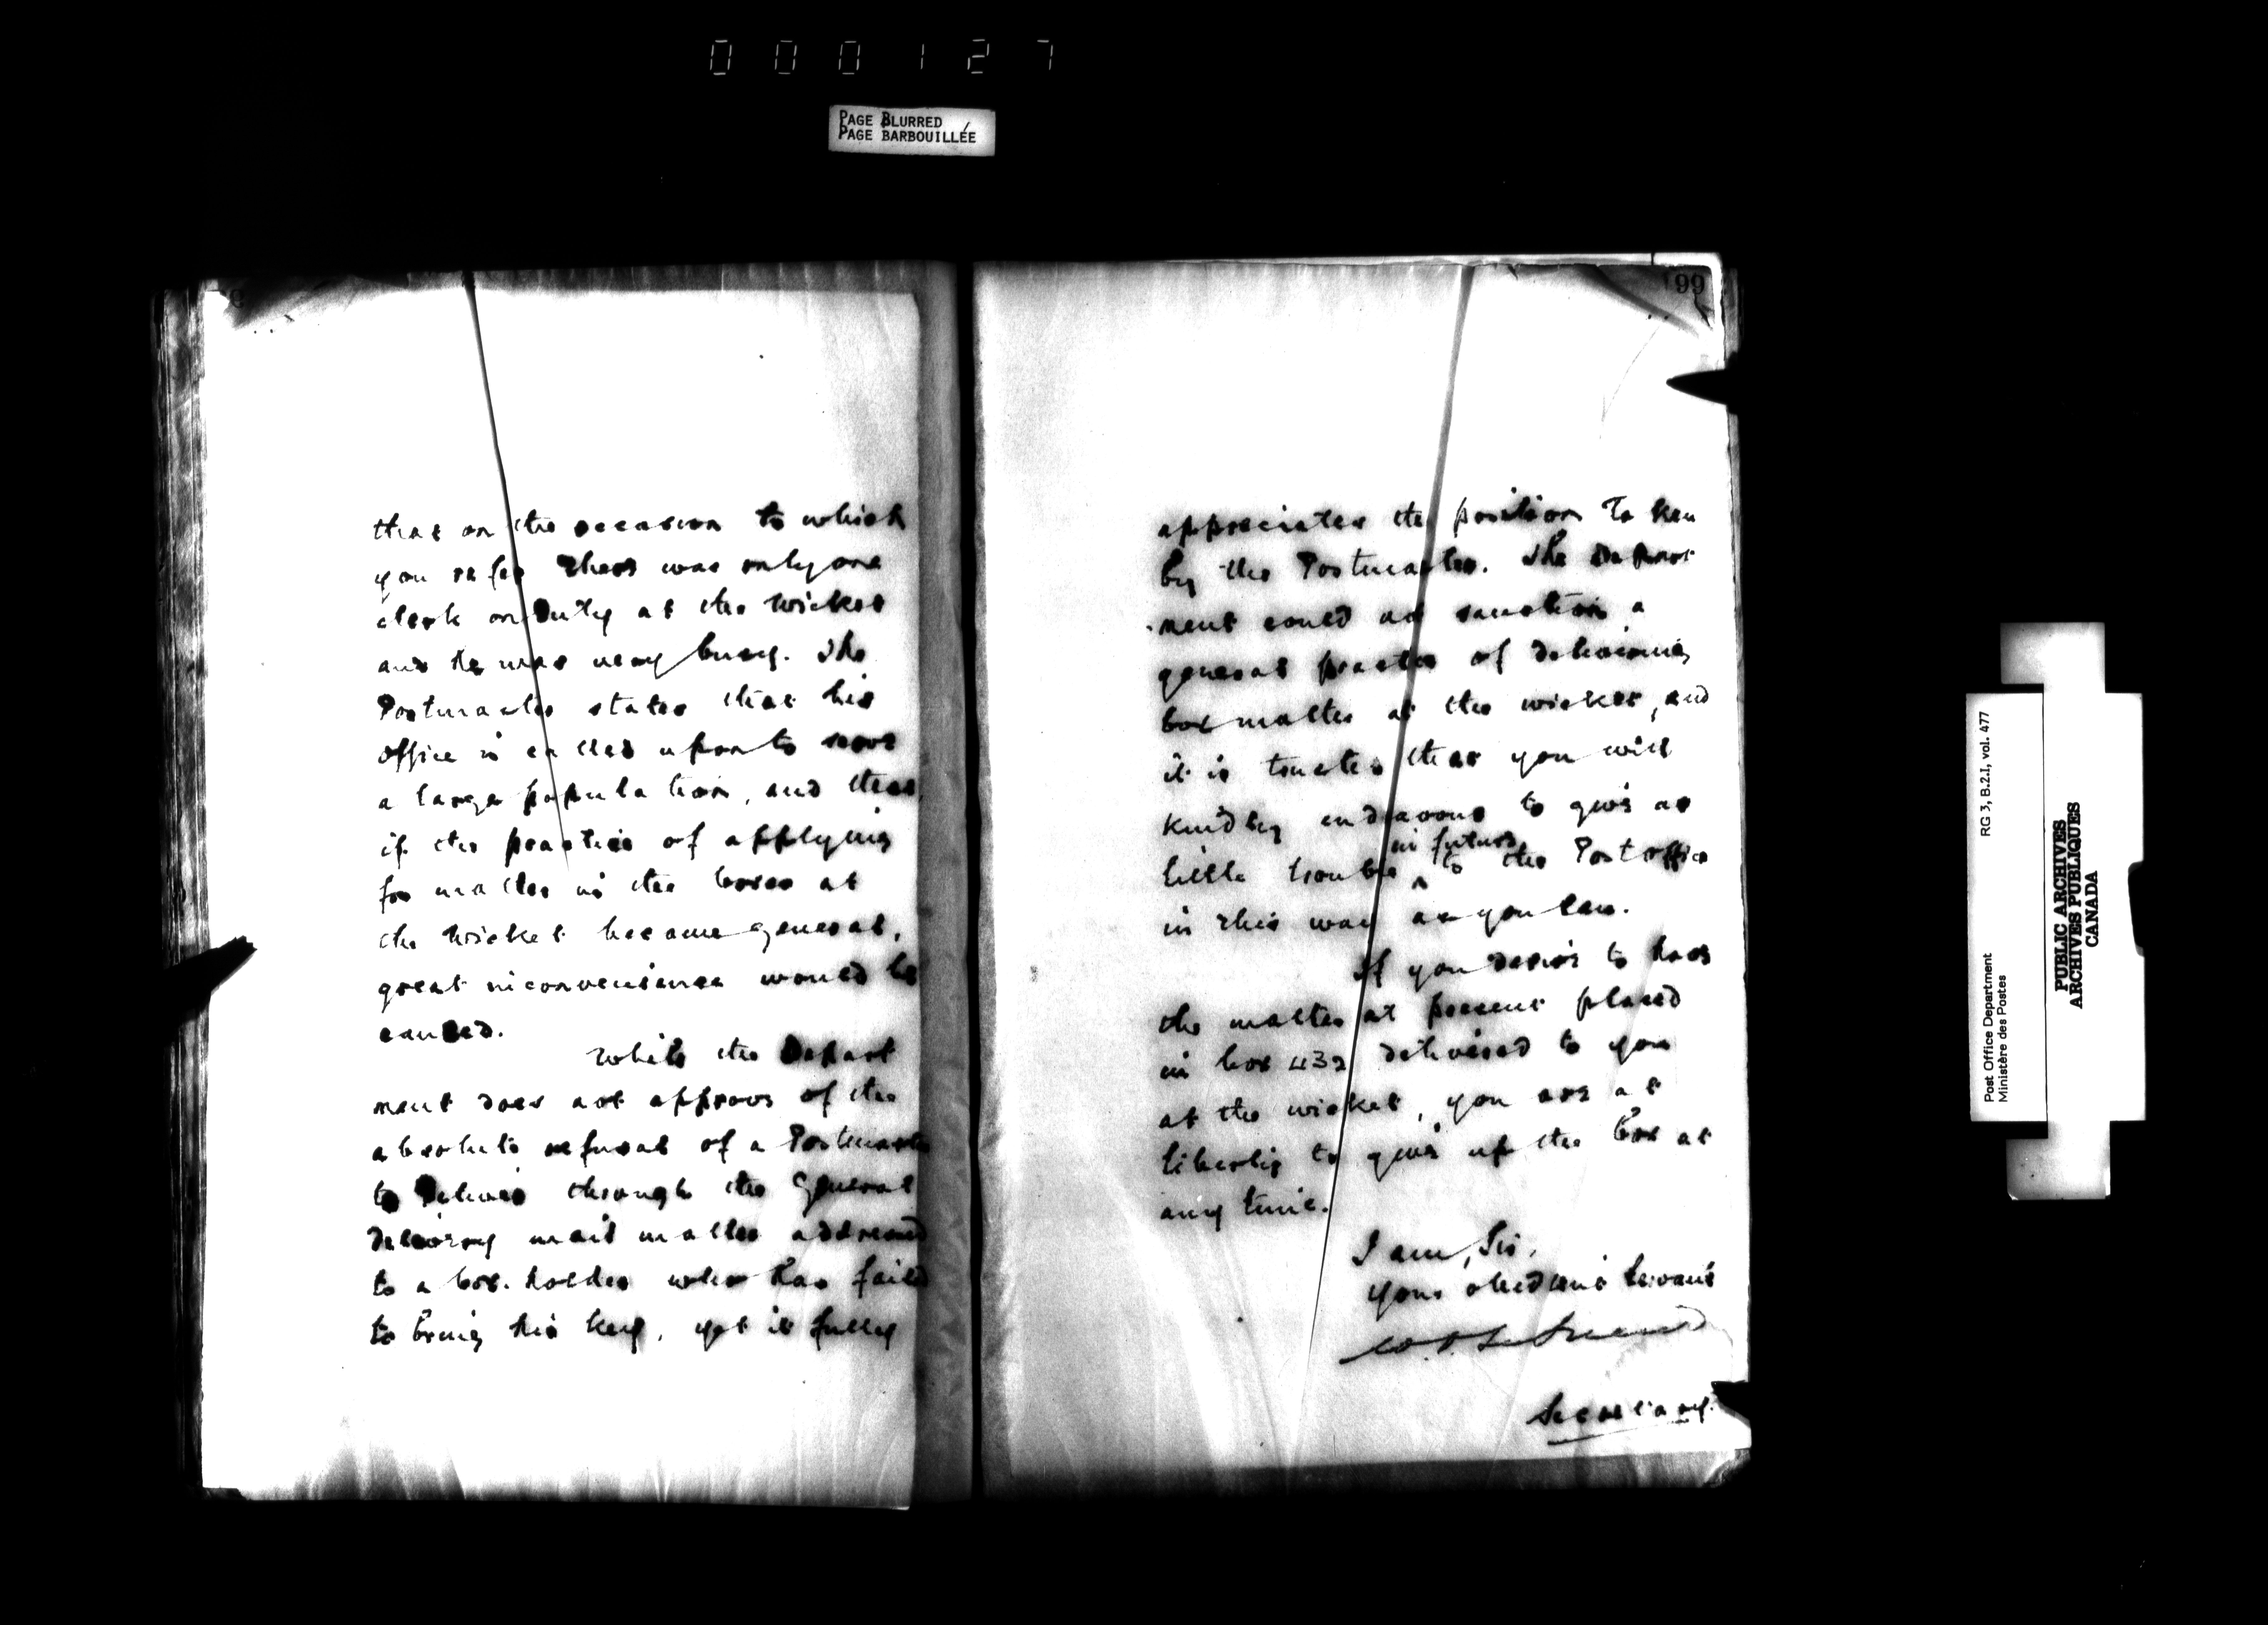 000127
PAGE BLURRED
PAGE BARBOUILLÉE
99
that on the occasion to which
you refer there was only one
clerk on duty at the wicket
and he was very busy. The
Postmaster states that his
office is called upon to serve
a large population, and that,
if the practice of applying
for matter in the boxes at
the wicket became general,
great inconvenience would be
caused.
While the Depart
ment does not approve of the
absolute refusal of a Postmaster
to deliver through the General
delivery mail matter addressed
to a box-holder who has failed
to bring his key, yet it fully
appreciates the position taken
by the Postmaster. The Depart
ment could not sanction a
general practice of delivering
box matter at the wicket, and
it is trusted that you will
kindly endeavour to give as
little trouble in future to the Post office
in this way as you can.
If you desire to have
the matter at present placed
in box 432 delivered to you
at the wicket, you are at
liberty to give up the box at
any time.
I am, Sir,
Your obedient Servant
Secretary.
RG 3, B.2.1, vol. 477
Post Office Department
Ministère des Postes
PUBLIC ARCHIVES
ARCHIVES PUBLIQUES
CANADA